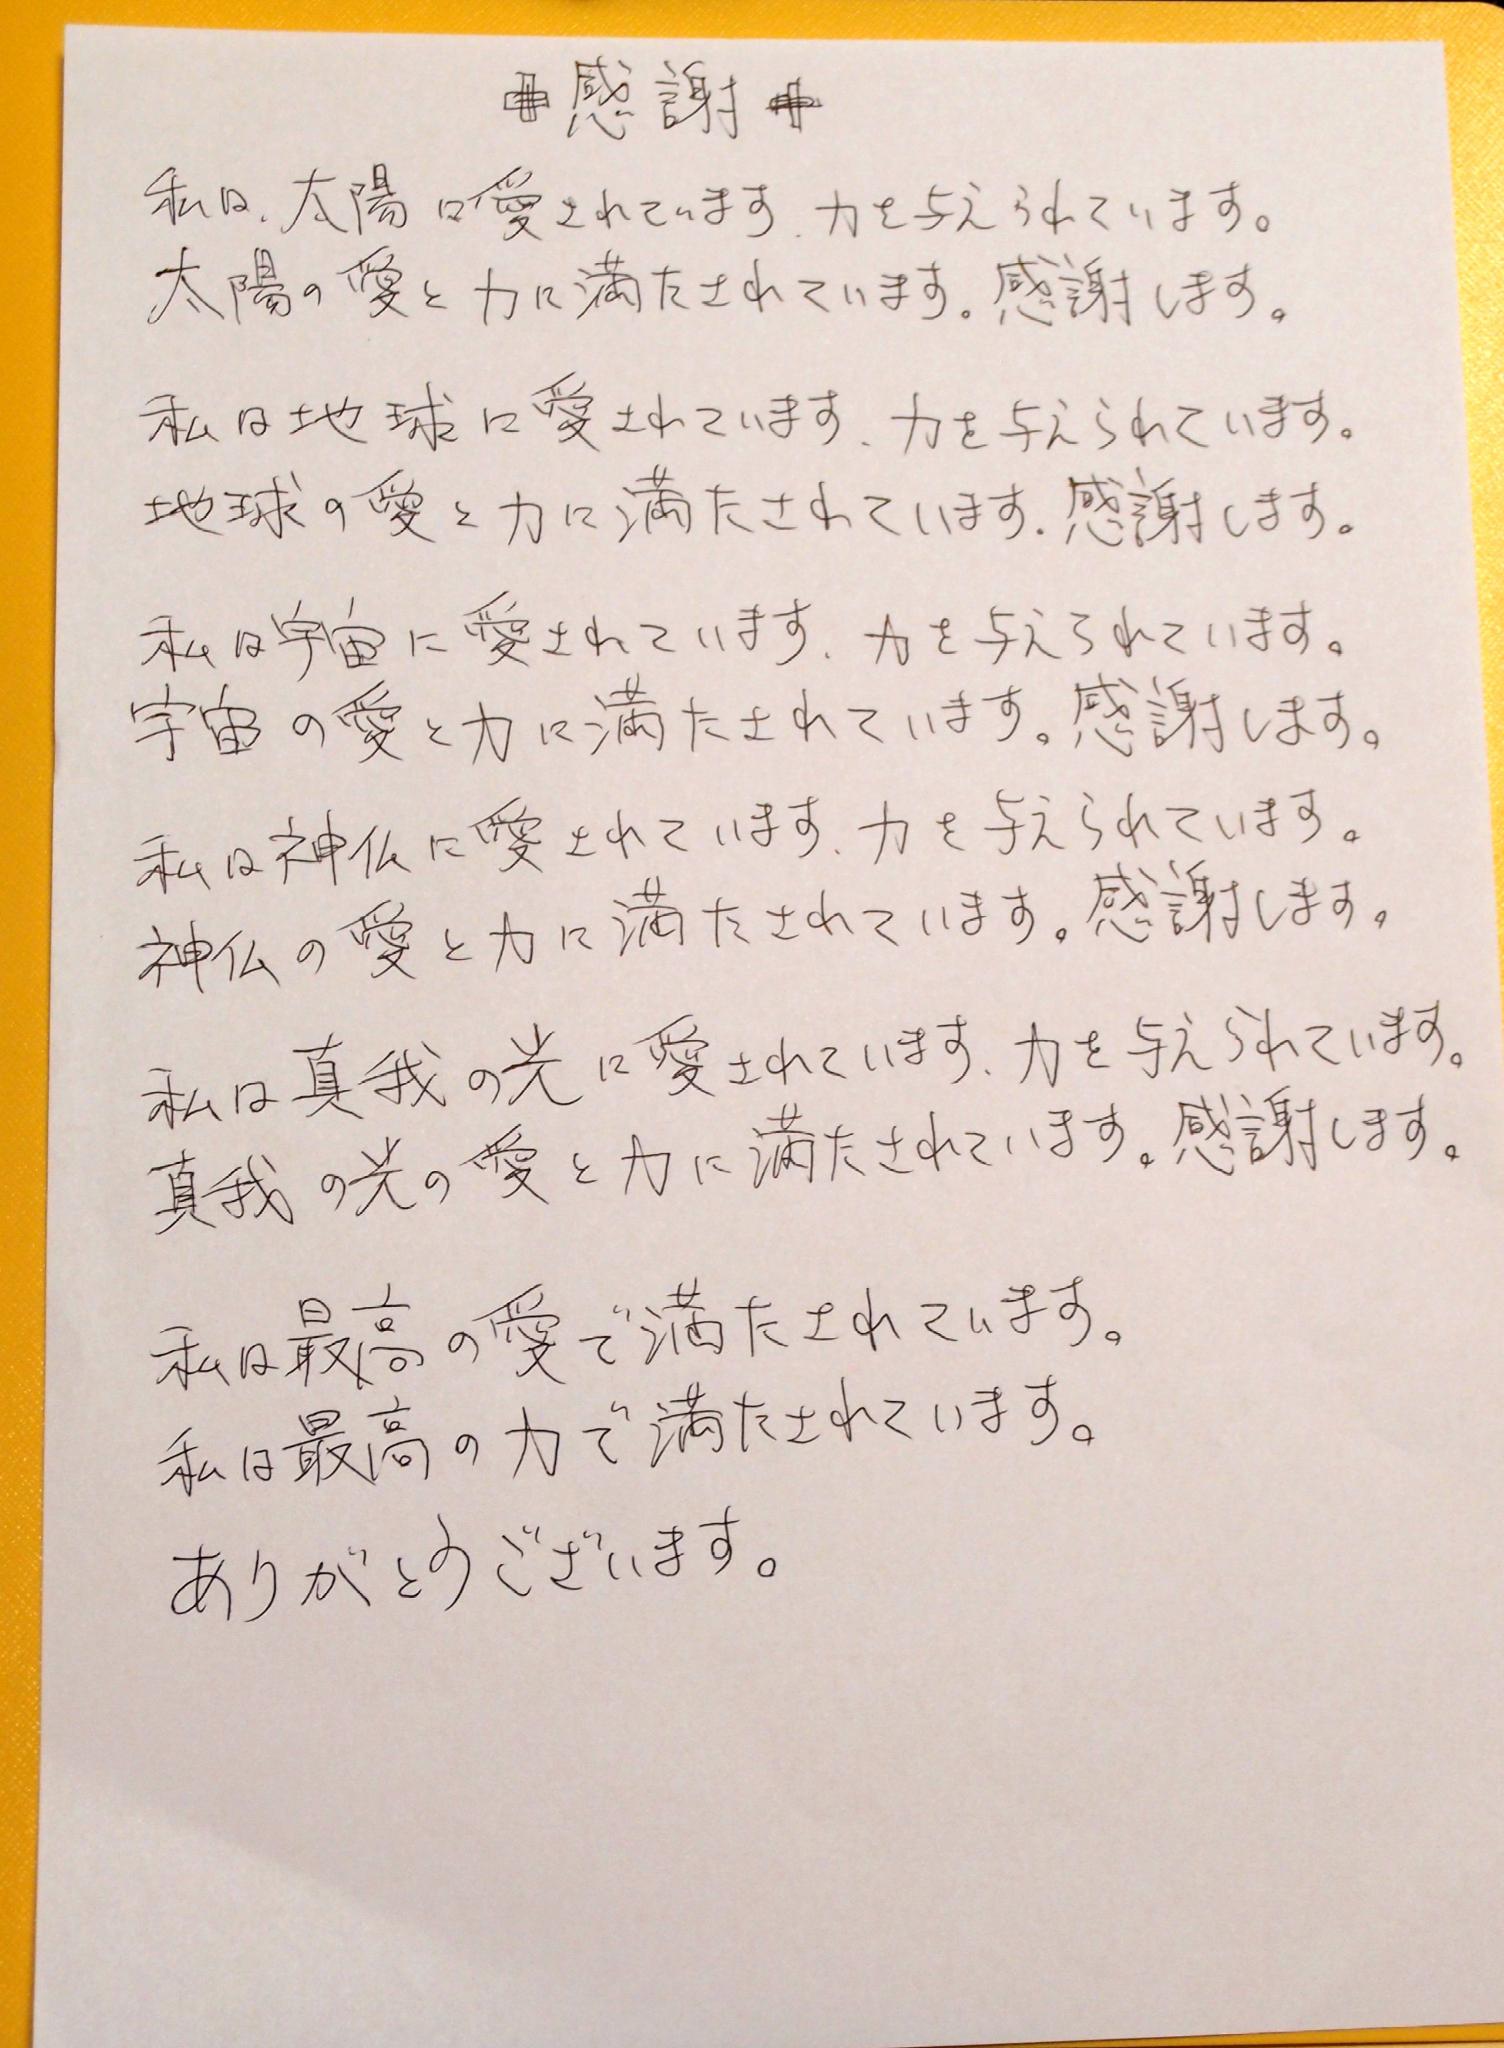 感謝
私は、太陽に愛されています、力を与えられています。
太陽の愛と力に満たされています。感謝します。
私は地球に愛されています、力を与えられています。
地球の愛と力に満たされています、感謝します。
私は宇宙に愛されています、力を与えられています。
宇宙の愛と力に満たされています。感謝します。
私は神仏に愛されています、力を与えられています。
神仏の愛と力に満たされています。感謝します。
私は真我の光に愛されています、力を与えられています。
真我の光の愛と力に満たされています。感謝します。
私は最高の愛で満たされています。
私は最高の力で満たされています。
ありがとうございます。